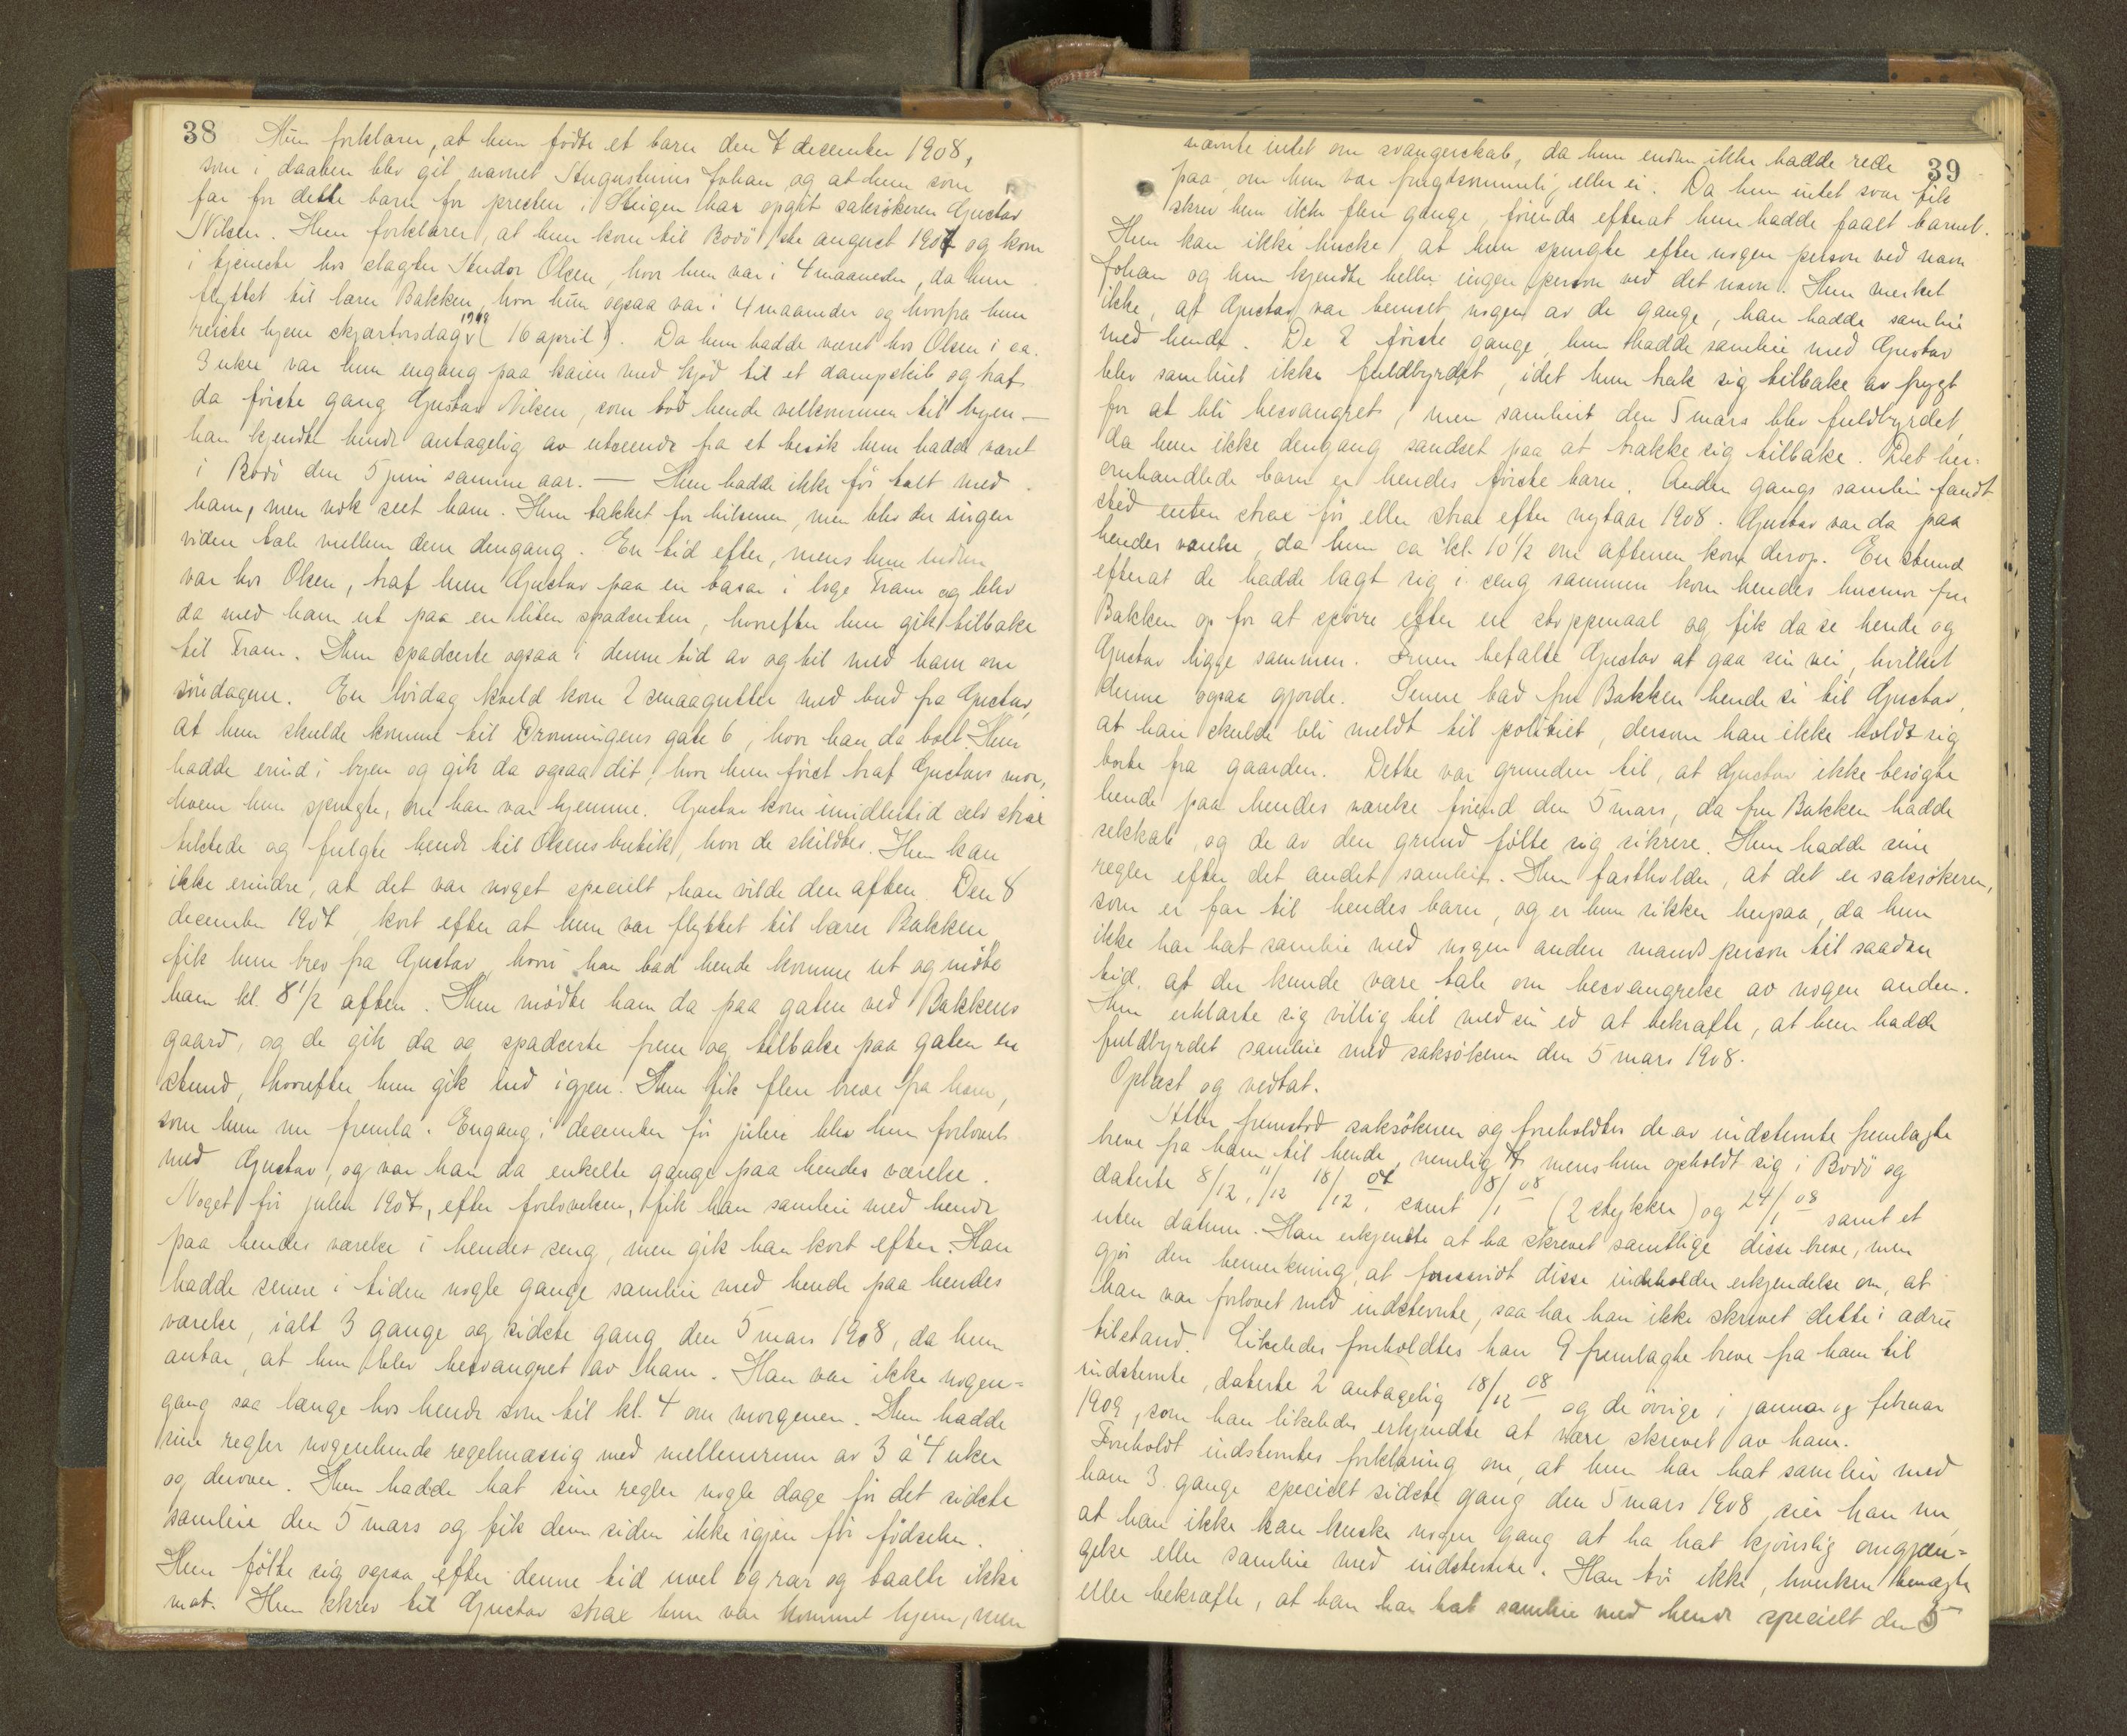 38
Hun forklarer, at hun fødte et barn den 7 december 1908,
som i daaben blev git navnet Augustinus Johan og at hun som
far for dette barn for presten i Steigen har opgit saksøkeren Gustav
Nilsen. Hun forklarer, at hun kom til Bodø 1ste august 1907 og kom
i tjeneste hos slagter Teodor Olsen, hvor hun var i 4 maaneder, da hun
flyttet til lærer Bakken, hvor hun ogsaa var i 4 maaneder og hvorfra hun
reiste hjem skjærtorsdag 1908 (16 april). Da hun hadde været hos Olsen i ca.
3 uker var hun engang paa kaien med kjød til et dampskib og traf
da første gang Gustav Nilsen, som bød hende velkommen til byen —
han kjendte hende antagelig av utseende fra et besøk hun hadde været
i Bodø den 5 juni samme aar. — Hun hadde ikke før talt med
ham, men nok seet ham. Hun takket for hilsenen, men blev der ingen
videre tale mellem dem dengang. En tid efter, mens hun endnu
var hos Olsen, traf hun Gustav paa en basar i loge Fram og blev
da med ham ut paa en liten spadsertur, hvorefter hun gik tilbake
til Fram. Hun spadserte ogsaa i denne tid av og til med ham om
søndagene. En lørdag kveld kom 2 smaagutter med bud fra Gustav,
at hun skulde komme til Dronningens gate 6, hvor han da bodde. Hun
hadde erind i byen og gik da ogsaa dit, hvor hun først traf Gustavs mor,
hvem hun spurgte, om han var hjemme. Gustav kom imidlertid selv strax
tilstede og fulgte hende til Olsens butik, hvor de skildtes. Hun kan
ikke erindre, at det var noget specielt han vilde den aften. Den 8
december 1907, kort efter at hun var flyttet til lærer Bakken
fik hun brev fra Gustav, hvori han bad hende komme ut og møte
ham kl. 8 1/2 aften. Hun mødte ham da paa gaten ved Bakkens
gaard, og de gik da og spadserte frem og tilbake paa gaten en
stund, hvorefter hun gik ind igjen. Hun fik flere breve fra ham,
som hun nu fremla. Engang i december før julen blev hun forlovet
med Gustav, og var han da enkelte gange paa hendes værelse.
Noget før julen 1907, efter forlovelsen, fik han samleie med hende
paa hendes værelse i hendes seng, men gik han kort efter. Han
hadde senere i tiden nogle gange samleie med hende paa hendes
værelse, ialt 3 gange og sidste gang den 5 mars 1908, da hun
antar, at hun blev besvangret av ham. Han var ikke nogen=
gang saa længe hos hende som til kl. 4 om morgenen. Hun hadde
sine regler nogenlunde regelmæssig med mellemrum av 3 à 4 uker
og derover. Hun hadde hat sine regler nogle dage før det sidste
samleie den 5 mars og fik dem siden ikke igjen før fødselen.
Hun følte sig ogsaa efter denne tid uvel og rar og taalte ikke
mat. Hun skrev til Gustav strax hun var kommet hjem, men
39
nævnte intet om svangerskab, da hun endnu ikke hadde rede
paa, om hun var frugtsommelig eller ei. Da hun intet svar fik
skrev hun ikke flere gange, førend efterat hun hadde faat barnet.
Hun kan ikke huske, at hun spurgte efter nogen person ved navn
Johan og hun kjendte heller ingen person ved det navn. Hun merket
ikke, at Gustav var beruset nogen av de gange, han hadde samleie
med hende. De 2 første gange, hun hadde samleie med Gustav
blev samleiet ikke fuldbyrdet, idet hun trak sig tilbake av frygt
for at bli besvangret, men samleiet den 5 mars blev fuldbyrdet,
da hun ikke dengang sandset paa at trække sig tilbake. Det her=
omhandlede barn er hendes første barn. Anden gangs samleie fandt
sted enten strax før eller strax efter nytaar 1908. Gustav var da paa
hendes værelse, da hun ca kl. 10 1/2 om aftenen kom derop. En stund
efterat de hadde lagt sig i seng sammen kom hendes husmor fru
Bakken op for at spørre efter en stoppenaal og fik da se hende og
Gustav ligge sammen. Fruen befalte Gustav at gaa sin vei, hvilket
denne ogsaa gjorde. Senere bad fru Bakken hende si til Gustav,
at han skulde bli meldt til politiet, dersom han ikke holdt sig
borte fra gaarden. Dette var grunden til, at Gustav ikke besøgte
hende paa hendes værelse førend den 5 mars, da fru Bakken hadde
selskab, og de av den grund følte sig sikrere. Hun hadde sine
regler efter det andet samleie. Hun fastholder, at det er saksøkeren,
som er far til hendes barn, og er hun sikker herpaa, da hun
ikke har hat samleie med nogen anden mandsperson til saadan
tid, at der kunde være tale om besvangrelse av nogen anden.
Hun erklærte sig villig til med sin ed at bekræfte, at hun hadde
fuldbyrdet samleie med saksøkeren den 5 mars 1908.
Oplæst og vedtat.
Atter fremstod saksøkeren og foreholdtes de av indstevnte fremlagte
breve fra ham til hende, nemlig 7, mens hun opholdt sig i Bodø og
daterte 8/12, 11/12 18/12 07, samt 8/1 08 (2 stykker) og 24/1 08 samt et
uten datum. Han erkjendte at ha skrevet samtlige disse breve, men
gjør den bemerkning, at forsaavidt disse indeholder erkjendelse om, at
han var forlovet med indstevnte, saa har han ikke skrevet dette i ædru
tilstand. Likeledes foreholdtes han 9 fremlagte breve fra ham til
indstevnte, daterte 2 antagelig 18/12 08 og de øvrige i januar og februar
1909, som han likeledes erkjendte at være skrevet av ham.
Foreholdt indstevntes forklaring om, at hun har hat samleie med
ham 3 gange specielt sidste gang den 5 mars 1908, sier han nu,
at han ikke kan huske nogen gang at ha hat kjønslig omgjæn=
gelse eller samleie med indstevnte. Han tør ikke, hverken benægte
eller bekræfte, at han har hat samleie med hende specielt den 5